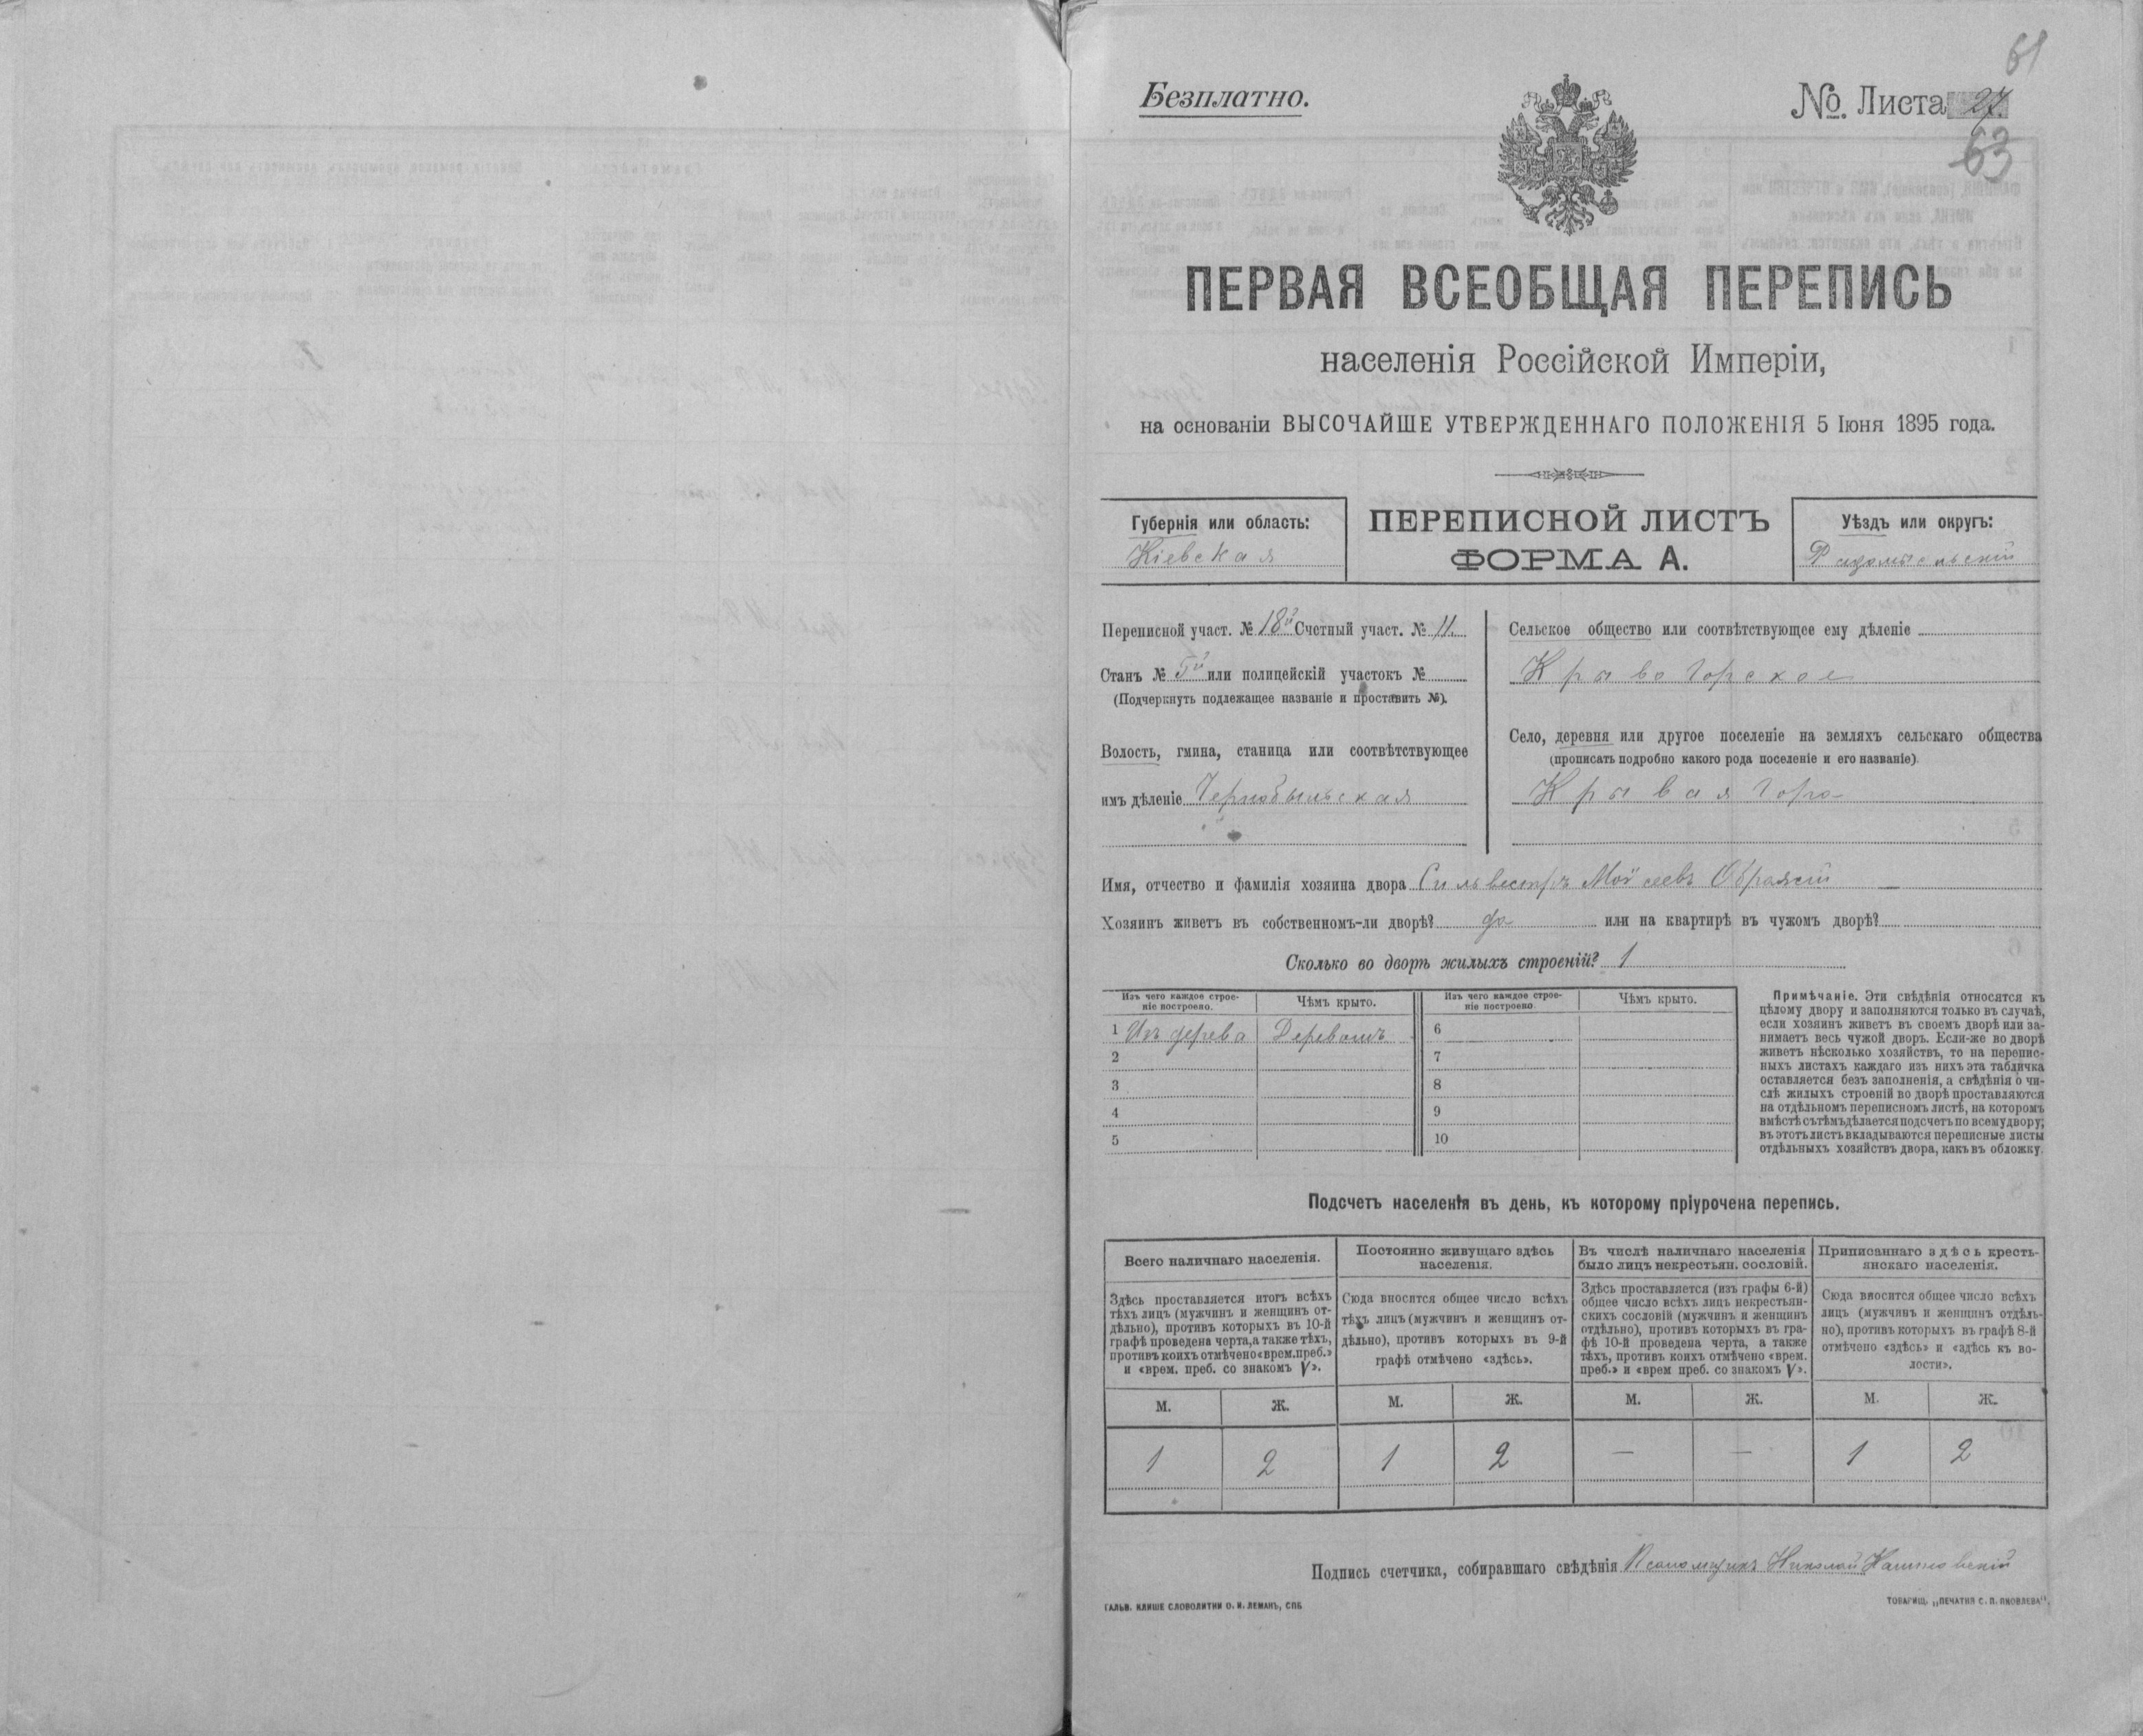 61
Безплатно.
№. Листа 27.
63
ПЕРВАЯ ВСЕОБЩАЯ ПЕРЕПИСЬ
населенія Россійской Имперіи,
на основаніи ВЫСОЧАЙШЕ УТВЕРЖДЕННАГО ПОЛОЖЕНІЯ 5 Іюня 1895 года.
Губернія или область:
Кіевская
ПЕРЕПИСНОЙ ЛИСТЪ
ФОРМА А.
Уѣздъ или округъ:
Радомысльскій
Переписной участ. № 18й Счетный участ. № 11.
Станъ № 5й или полицейскій участокъ №
(Подчеркнуть подлежащее названіе и проставить №).
Волость, гмина, станица или соотвѣтствующее
имъ дѣленіе Чернобыльская
Сельское общество или соотвѣтствующее ему дѣленіе
Крывогорское
Село, деревня или другое поселеніе на земляхъ сельскаго общества
(прописать подробно какого рода поселеніе и его названіе).
Крывая Гора
Имя, отчество и фамилія хозяина двора Сильвестръ Мойсеевъ
Хозяинъ живетъ въ собственномъ-ли дворѣ? да или на квартирѣ въ чужомъ дворѣ?
Сколько во дворѣ жилыхъ строеній? 1
Изъ чего каждое строе-
ніе построено.
Чѣмъ крыто.
Изъ чего каждое строе-
ніе построено
Чѣмъ крыто.
1 Изъ дерева Деревомъ 6
2 7
3 8
4 9
5 10
Примѣчаніе. Эти свѣдѣнія относятся къ
цѣлому двору и заполняются только въ случаѣ,
если хозяинъ живетъ въ своемъ дворѣ или за-
нимаетъ весь чужой дворъ. Если-же во дворѣ
живетъ нѣсколько хозяйствъ, то на перепис-
ныхъ листахъ каждаго изъ нихъ эта табличка
оставляется безъ заполненія, а свѣдѣнія о чи-
слѣ жилыхъ строеній во дворѣ проставляются
на отдѣльномъ переписномъ листѣ, на которомъ
вмѣстѣ съ тѣмъ дѣлается подсчетъ по всему двору;
въ этотъ листъ вкладываются переписные листы
отдѣльныхъ хозяйствъ двора, какъ въ обложку.
Подсчетъ населенія въ день, къ которому пріурочена перепись.
Всего наличнаго населенія.
Здѣсь проставляется итогъ всѣхъ
тѣхъ лицъ (мужчинъ и женщинъ от-
дѣльно), противъ которыхъ въ 10-й
графѣ проведена черта, а также тѣхъ,
противъ коихъ отмѣчено «врем. преб.»
и «врем. преб. со знакомъ V».
Постоянно живущаго здѣсь
населенія.
Сюда вносится общее число всѣхъ
тѣхъ лицъ (мужчинъ и женщинъ от-
дѣльно), противъ которыхъ въ 9-й
графѣ отмѣчено «здѣсь».
Въ числѣ наличнаго населенія
было лицъ некрестьян. сословій.
Здѣсь проставляется (изъ графы 6-й)
общее число всѣхъ лицъ некрестьян-
скихъ сословій (мужчинъ и женщинъ
отдѣльно), противъ которыхъ въ гра-
фѣ 10-й проведена черта, а также
тѣхъ, противъ коихъ отмѣчено «врем.
преб.» и «врем преб. со знакомъ V».
Приписаннаго здѣсь кресть-
янскаго населенія.
Сюда вносится общее число всѣхъ
лицъ (мужчинъ и женщинъ отдѣль-
но), противъ которыхъ въ графѣ 8-й
отмѣчено «здѣсь» и «здѣсь къ во-
лости».
М. Ж. М. Ж. М. Ж. М. Ж.
1 2 1 2 — — 1 2
Подпись счетчика, собиравшаго свѣдѣнія Псаломщикъ Николай
ГАЛЬВ. КЛИШЕ СЛОВОЛИТНИ О. И. ЛЕМАНЪ, СПБ
ТОВАРИЩ. „ПЕЧАТНЯ С. П. ЯКОВЛЕВА".